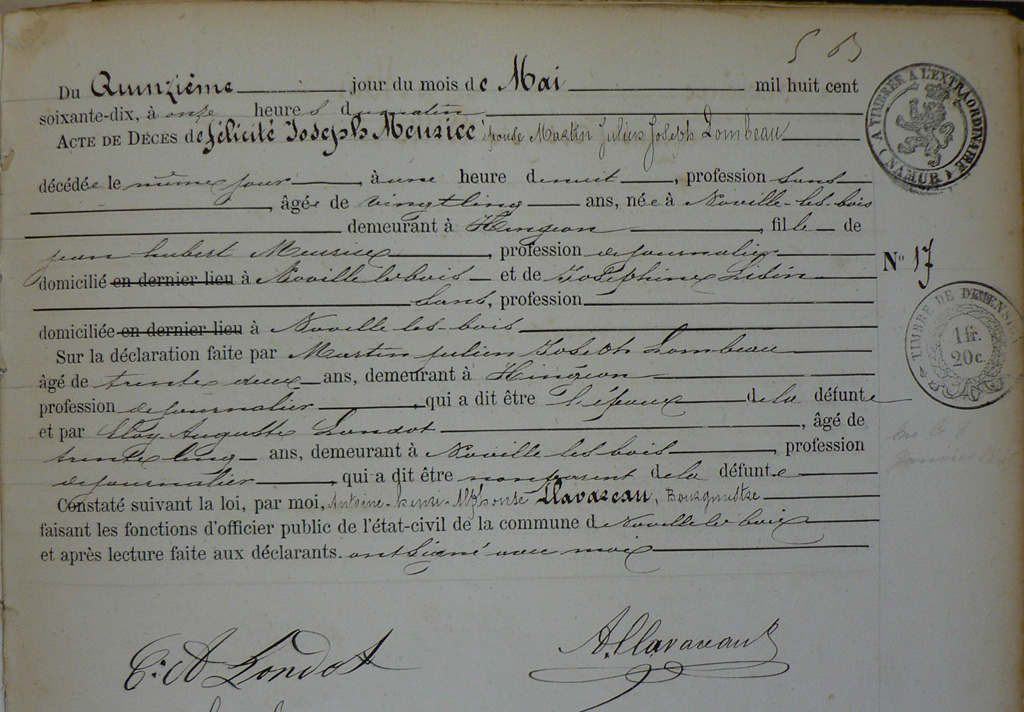 5 B
Du Quinzième jour du mois de Mai mil huit cent
soixante-dix, à onze heures du matin
ACTE DE DÉCÈS de félicité Joseph Meurice épouse Martin Julien Joseph Lombeau
décédée le même jour, à une heure de nuit, profession sans
, âgée de vingt cinq ans, née à Noville-les-bois
demeurant à Hingeon, fille de
jean hubert Meurice, profession de journalier
domicilié en dernier lieu à Noville les bois et de Joséphine
Sans, profession
domiciliée en dernier lieu à Noville-les-bois
Sur la déclaration faite par Martin julien Joseph Lombeau
âgé de trente deux ans, demeurant à Hingeon
profession de journalier, qui a dit être l'époux de la défunte
et par Eloy Auguste Londot, âgé de
trente cinq ans, demeurant à Noville les bois, profession
de journalier, qui a dit être non parent de la défunte
Constaté suivant la loi, par moi, Antoine-henri-Alphonse, Bourgmestre
faisant les fonctions d'officier public de l'état-civil de la commune de Noville les bois
et après lecture faite aux déclarants. ont signé avec moi
E: A Londot
A TIMBRER A L'EXTRAORDINAIRE
(NAMUR)
N° 17
TIMBRE DE DIMENS
1 fr.
20 c.